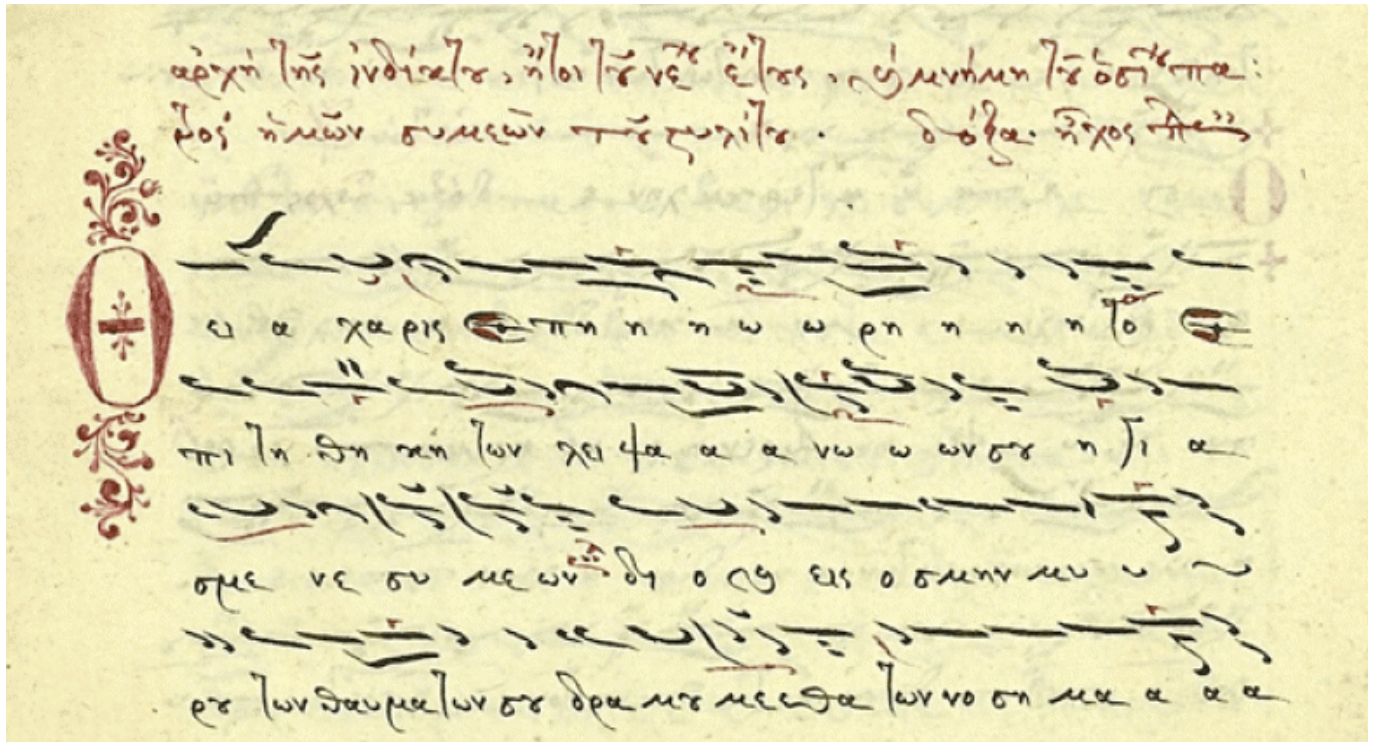 ἀρχὴ τῆς ἰνδίκτου, ἤτοι τοῦ νέου ἔτους, καὶ μνήμη τοῦ ὁσίου πα:
τρὸς ἡμῶν συμεὼν τοῦ στυλίτου. δόξα. ἦχος
Θ ει α χα ρις ε πη η η ω ω ρη η η η το ε
πι τη θη κη των λει ψα α α νω ω ων σου η γι α
σμε νε συ με ων δι ο και εις ο σμην μυ υ υ
ρου των θαυμα των σου δρα μου με ε θα των νο ση μα α α α